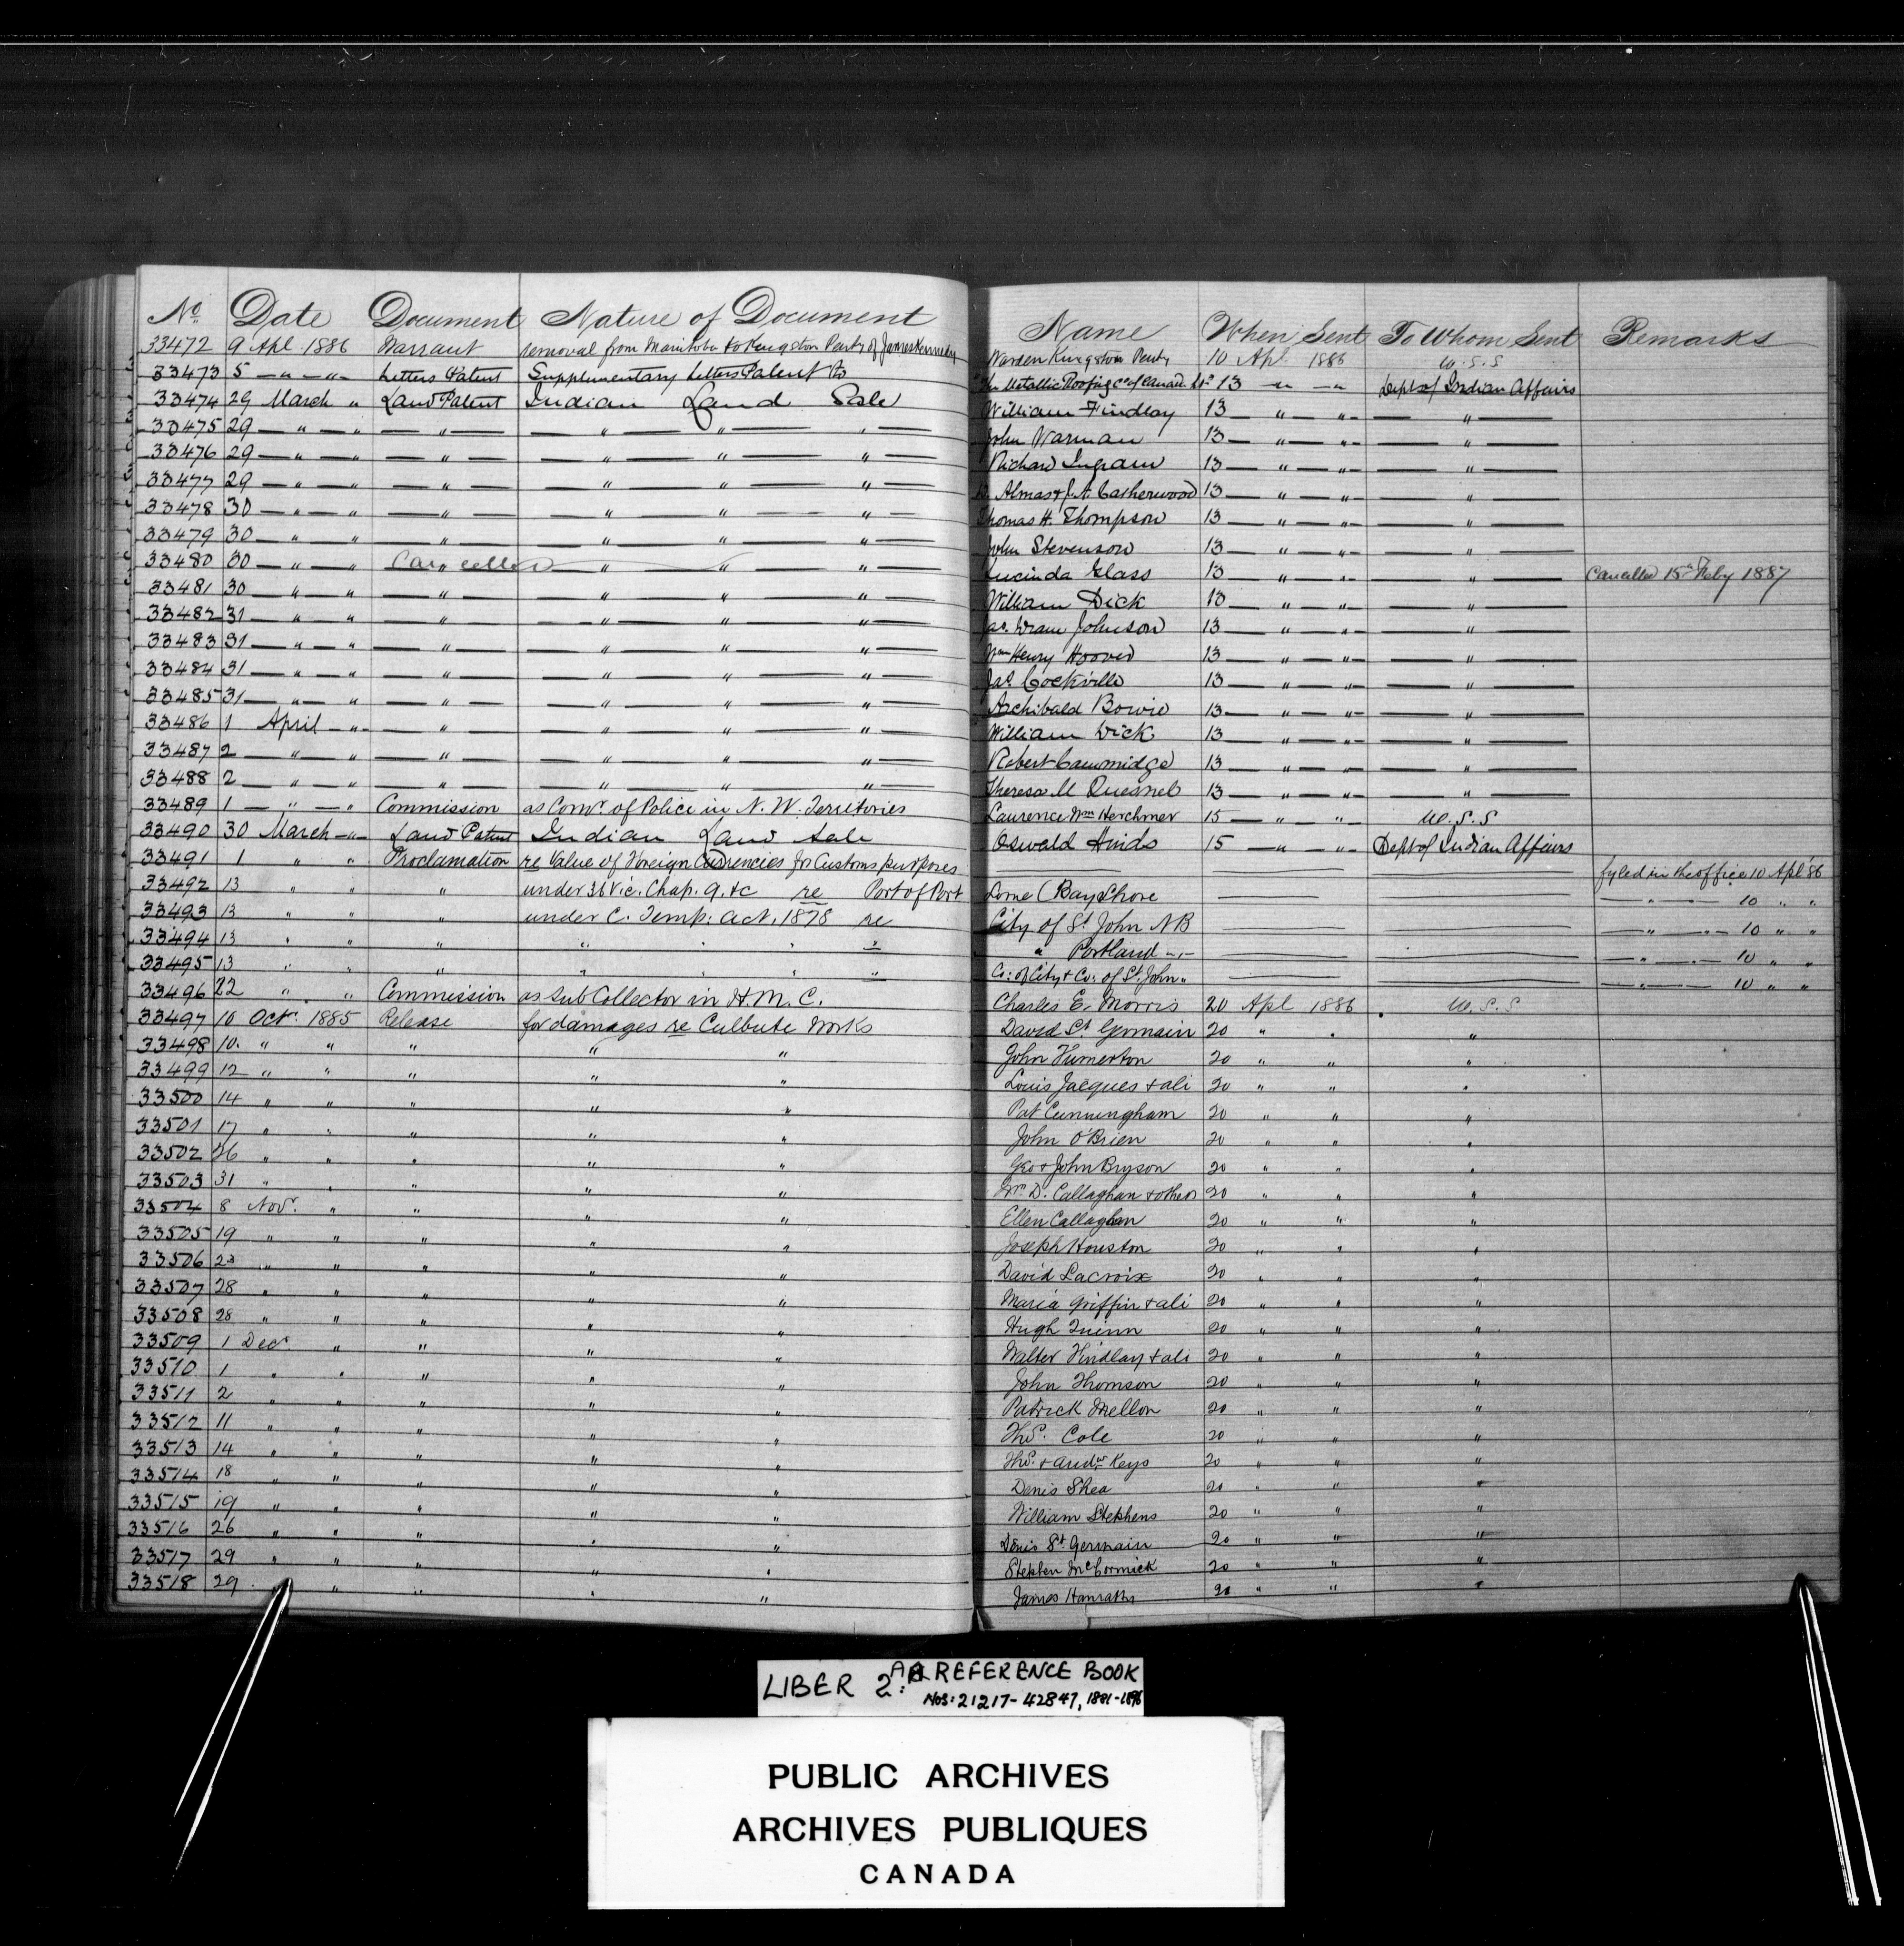 No Date Document Nature of Document Name When Sent To Whom Sent Remarks
33472 9 Apl 1886 Warrant removal from Manitoba to Kingston Penty of James Kennedy Warden Kingston Penty 10 Apl 1886 U.S.S
33473 5 " " Letters Patent Supplimentary Letters Patent to The Metallic Roofing Co of Canada Ltd 13 " " Dept of Indian Affairs
33474 29 March " Land Patent Indian Land Sale William Findlay 13 " " "
33475 29 " " " " " " John Warman 13 " " "
33476 29 " " " " " " Richard Ingram 13 " " "
33477 29 " " " " " " Almas & J. A. Catherwood 13 " " "
33478 30 " " " " " " Thomas H. Thompson 13 " " "
33479 30 " " " " " " John Stevenson 13 " " "
33480 30 " " Cancelled " " " Lucinda Glass 13 " " " Cancelled 15th Feby 1887
33481 30 " " " " " " William Dick 13 " " "
33482 31 " " " " " " Jas. Johnson 13 " " "
33483 31 " " " " " " Wm Henry Hoover 13 " " "
33484 31 " " " " " " Jas. Cockville 13 " " "
33485 31 " " " " " " Archibald Bowie 13 " " "
33486 1 April " " " " " William Dick 13 " " "
33487 2 " " " " " " Robert 13 " " "
33488 2 " " " " " " Theresa M Quesnel 13 " " "
33489 1 " " Commission as Comr. of Police in N. W. Territories Laurence Wm Herchmer 15 " " U.S.S
33490 30 March " Land Patent Indian Land Sale Oswald Hinds 15 " " Dept of Indian Affairs
33491 1 " " Proclamation re Value of Foreign Currencies for Customs purposes fyled in the office 10 Apl '86
33492 13 " " " under 36 Vic. Chap. 9. &c re Port of Port Lorne (Bay Shore " " 10 " "
33493 13 " " " under C. Temp: Act, 1878 re City of St John NB " " 10 " "
33494 13 " " " " " " " " Portland " " " 10 " "
33495 13 " " " " " " " Co: of City & Co: of St. John " " " 10 " "
33496 22 " " Commission as Sub Collector in H. M. C. Charles E. Morris 20 Apl 1886 U.S.S
33497 10 Octr. 1885 Release for damages re Culbute Works David St Germain 20 " " "
33498 10. " " " " " John Humerton 20 " " "
33499 12 " " " " " Louis Jacques & ali 20 " " "
33500 14 " " " " " Pat Cunningham 20 " " "
33501 17 " " " " " John O'Brien 20 " " "
33502 26 " " " " " Geo & John Bryson 20 " " "
33503 31 " " " " " D. Callaghan & others 20 " " "
33504 8 Novr. " " " " Ellen Callaghan 20 " " "
33505 19 " " " " " Joseph Houston 20 " " "
33506 23 " " " " " David Lacroix 20 " " "
33507 28 " " " " " Maria Griffin & ali 20 " " "
33508 28 " " " " " Hugh Quinn 20 " " "
33509 1 Decr. " " " " Walter Findlay & ali 20 " " "
33510 1 " " " " " John Thomson 20 " " "
33511 2 " " " " " Patrick Mellon 20 " " "
33512 11 " " " " " Thos. Cole 20 " " "
33513 14 " " " " " Thos. & Andw Keys 20 " " "
33514 18 " " " " " Denis Shea 20 " " "
33515 19 " " " " " William Stephens 20 " " "
33516 26 " " " " " Denis St. Germain 20 " " "
33517 29 " " " " " Stephen McCormick 20 " " "
33518 29 " " " " " James Hanrathy 20 " " "
LIBER 2A: REFERENCE BOOK
NOS: 21217-42847, 1881-1896
PUBLIC ARCHIVES
ARCHIVES PUBLIQUES
CANADA